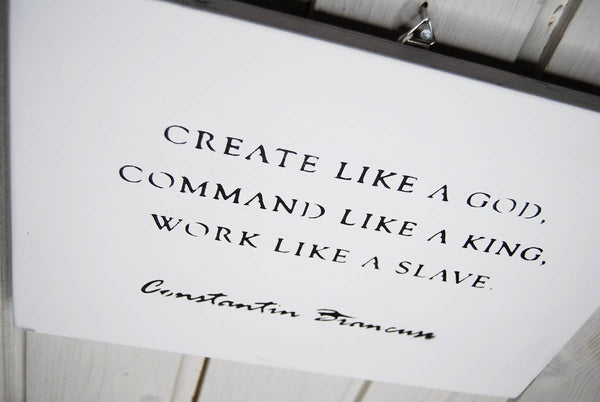 CREATE LIKE A GOD,
COMMAND LIKE A KING,
WORK LIKE A SLAVE.
Constantin Brancusi